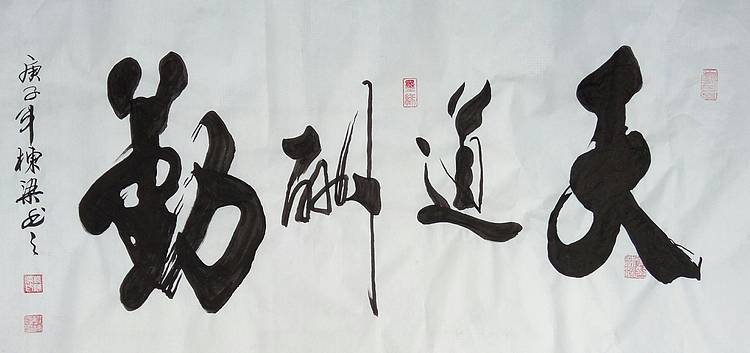 天道酬勤
庚子年栋梁书之